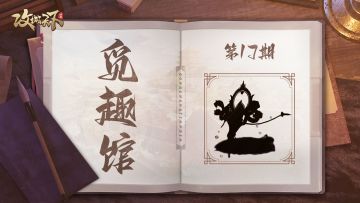 攻城掠地
觅趣馆
第17期